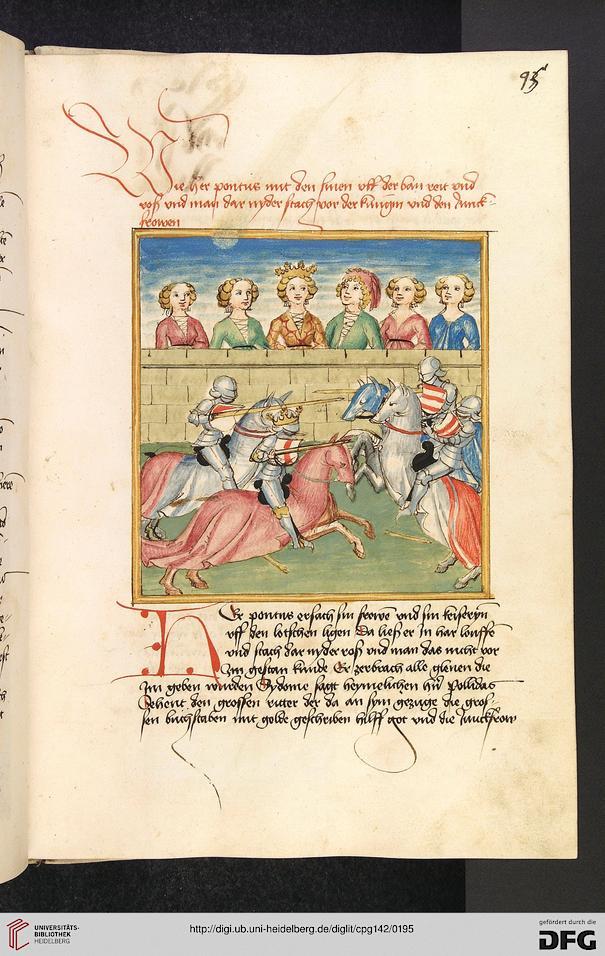 93r
Wie her pontus mit den sinen vff der ban reit vnd
roß vnd man dar nyder stach vor der kungin vnd den Junck-
frowen
Er pontus ersach sin frowe vnd sin keiserÿn
vff den lotschen ligen Da ließ er in har louffe
vnd stach dar nyder roß vnd man das nicht vor
Im gestan kunde Er zerbrach alle glenen die
Im geben wurden Sydonie sagt heymelichen hũ pollidas
Sehent den grossen ritter der da an sym gezuge die gros-
sen buchstaben mit golde geschriben hilff got vnd die Junckfrow
UNIVERSITÄTS-
BIBLIOTHEK
HEIDELBERG
http://digi.ub.uni-heidelberg.de/diglit/cpg142/0195
gefördert durch die
DFG